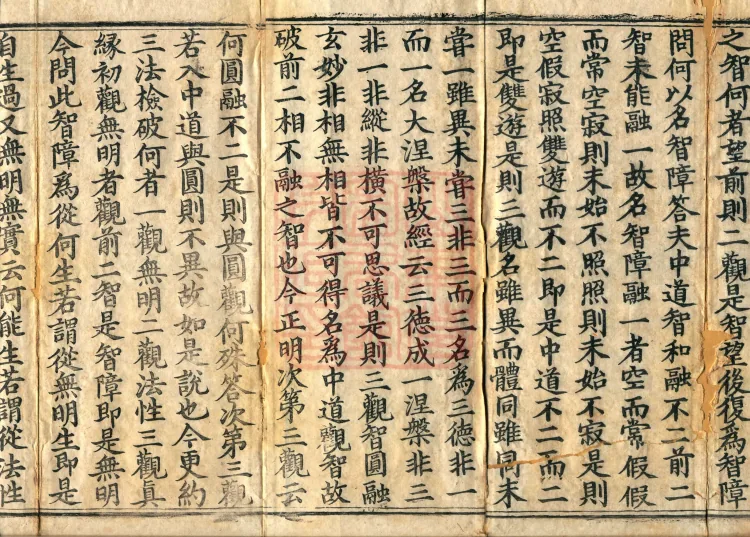 之智何者望前則二觀是智望後復爲智障
問何以名智障答夫中道智和融不二前二
智未能融一故名智障融一者空而常假假
而常空寂則未始不照照則未始不寂是則
空假寂照雙遊而不二即是中道不二而二
即是雙遊是則三觀名雖異而體同雖同未
甞一雖異未甞三非三而三名爲三德非一
而一名大涅槃故經云三德成一涅槃非三
非一非縱非橫不可思議是則三觀智圓融
玄妙非相無相皆不可得名爲中道觀智故
破前二相不融之智也今正明次第三觀云
何圓融不二是則與圓觀何殊答次第三觀
若入中道與圓則不異故如是說也今更約
三法檢破何者一觀無明二觀法性三觀眞
緣初觀無明者觀前二智是智障即是無明
今問此智障爲從何生若謂從無明生即是
自生過又無明無實云何能生若謂從法性